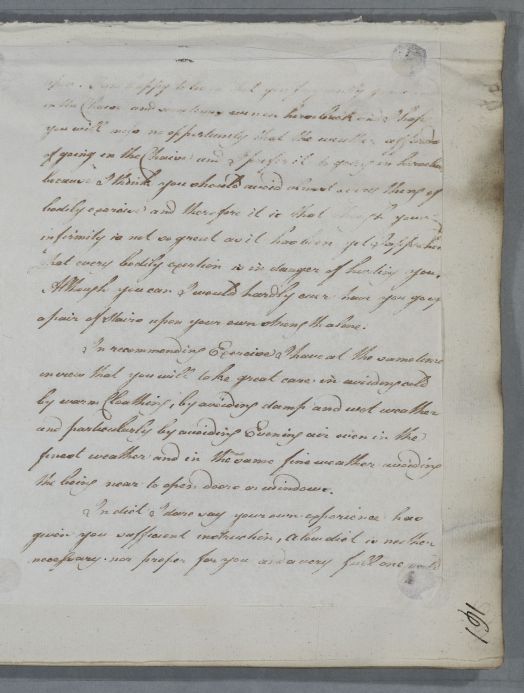 happy to hear that you frequently go
in the Chaise and sometimes even on horseback and I hope
you will miss no opportunity that the weather affords
of going in the Chaise and I prefer it to going on horseback
because I think you should avoid almost every thing of
bodily exercise and therefore it is that your
infirmity is not so great as it has been yet I apprehen
that every bodily exertion is in danger of hurting you.
Although you can I would hardly ever have you go up
a pair of Stairs upon your own strength alone.
In recommending Exercise I have at the same time
in view that you will take great care in avoiding cold
by warm Cloathing, by avoiding damp and wet weather
and particularly by avoiding Evening air even in the
finest weather and in the same fine weather avoiding
the being near to open doors or windows.
In diet I dare say your own experience has
given you sufficient instruction, a low diet is neither
necessary nor proper for you and a very full one
191